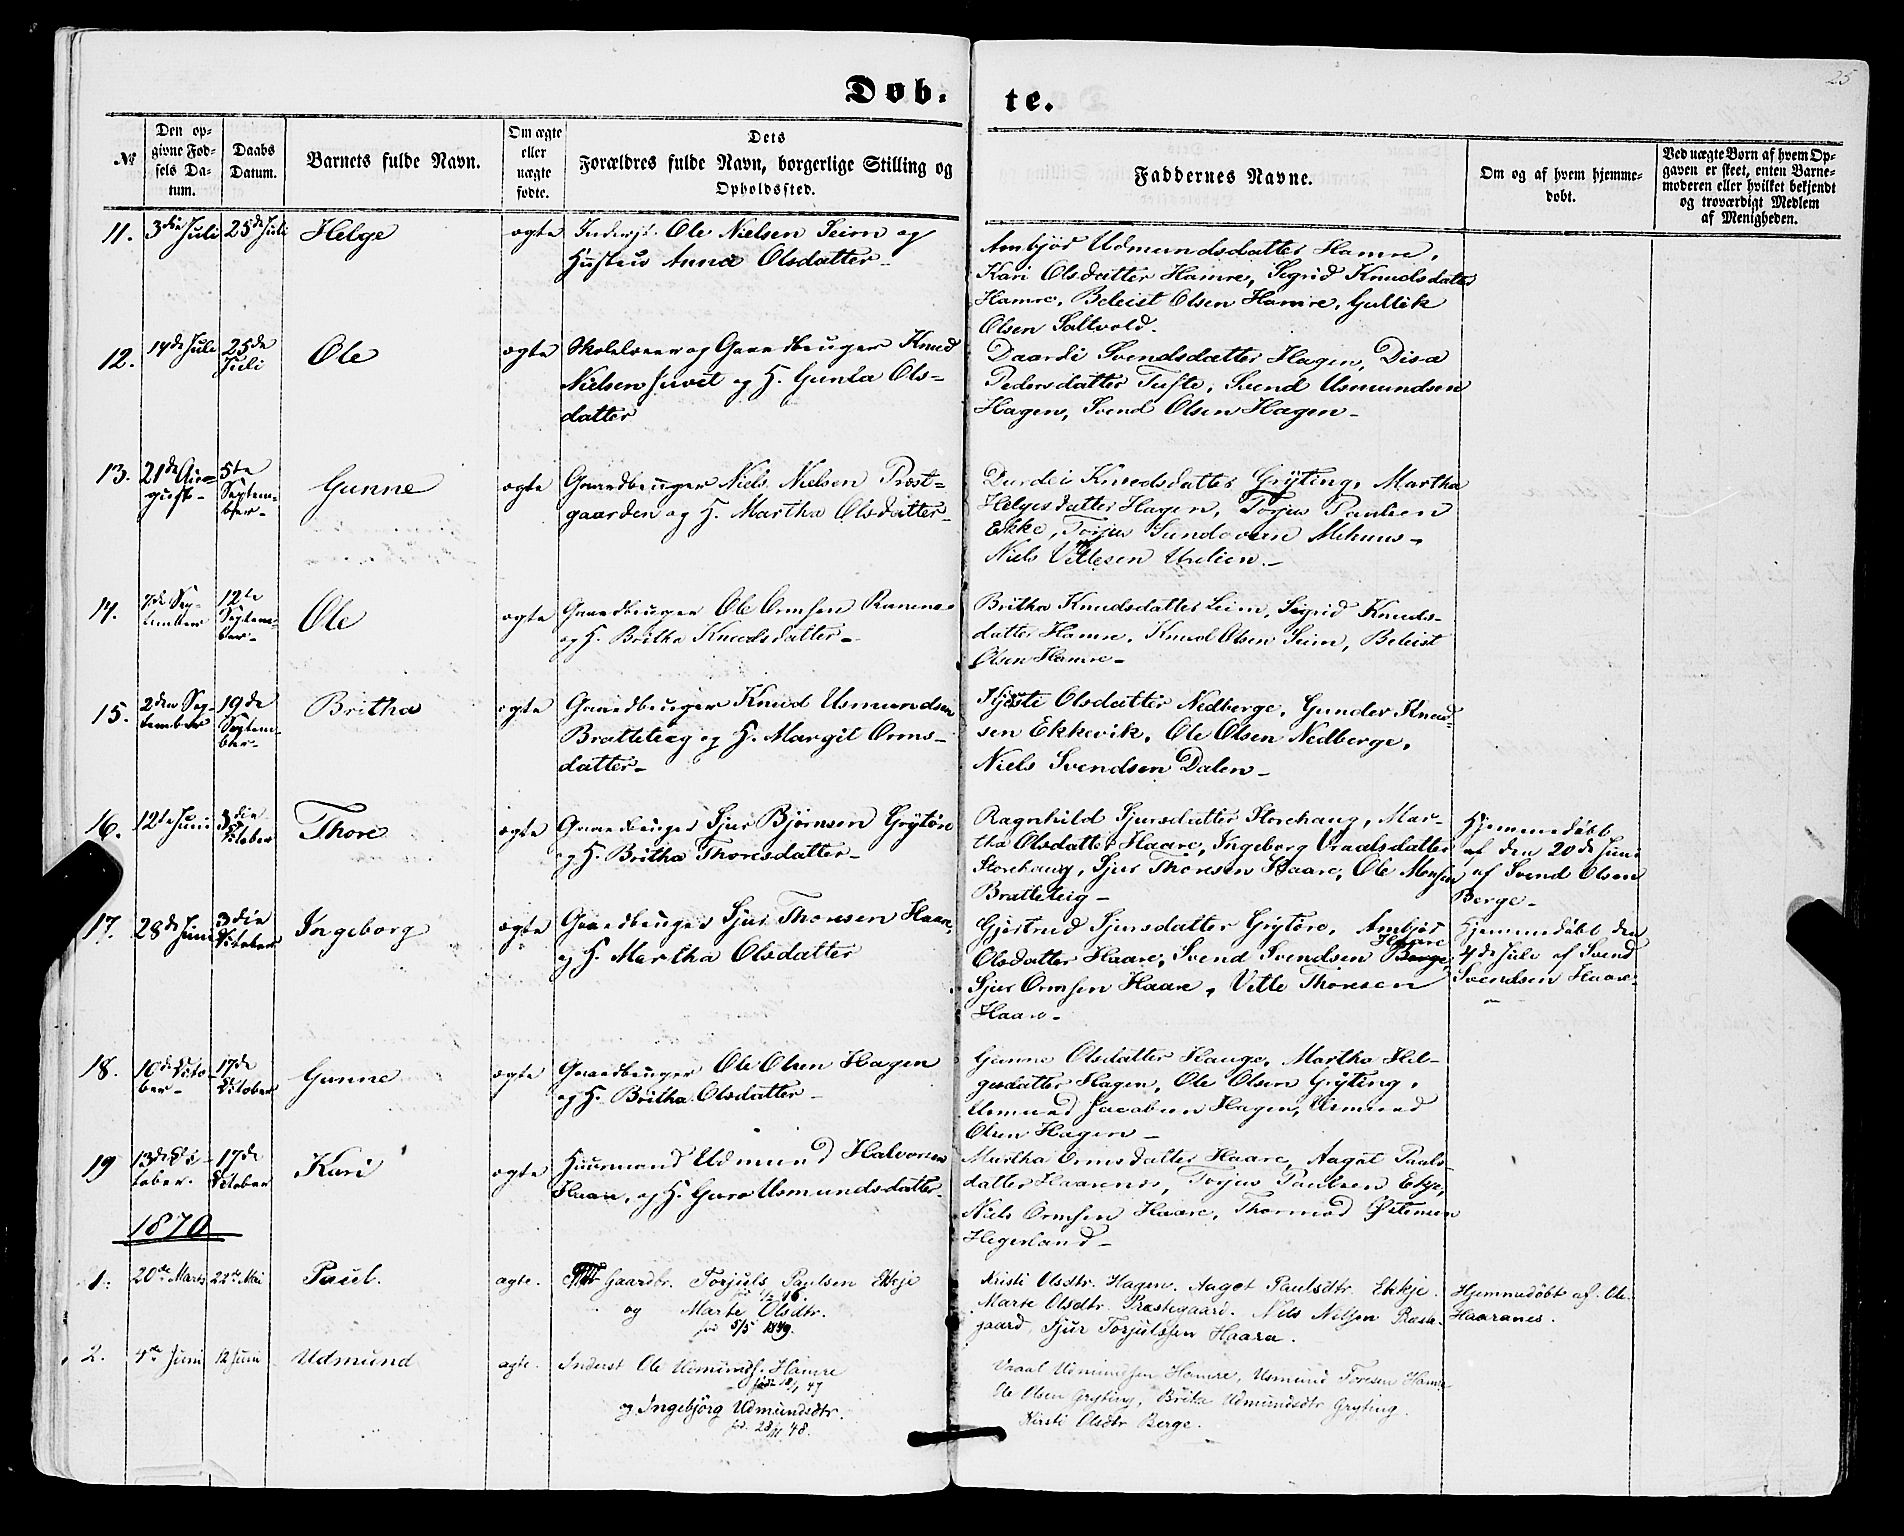 Døb-
te.
25
No
Den op-
givne Fød-
sels Da-
tum.
Daabs
Datum.
Barnets fulde Navn.
Om ægte
eller
uægte
fødte.
Dets
Forældres fulde Navn, borgerlige Stilling og
Opholdssted.
Faddernes Navne.
Om og af hvem hjemme-
døbt.
Ved uægte Børn af hvem Op-
gaven er skeet, enten Barne-
moderen eller hvilket bekjendt
og troværdigt Medlem
af Menigheden.
11. 3die Juli 25de Juli Helge ægte Inderst Ole Nielsen Seim og
Hustru Anne Olsdatter
Ambjør Udmundsdatter Hamre,
Kari Olsdatter Hamre, Sigrid Knudsdatter
Hamre, Beleist Olsen Hamre, Gullik
Olsen Saltvold.
12. 14de Juli 25de
Juli Ole ægte Skolelærer og Gaardbruger Knud
Nielsen Juvet og H. Gunla Ols-
datter
Daardi Svendsdatter Hagen, Disa
Pedersdatter Tufte, Svend Usmundsen
Hagen, Svend Olsen Hagen -
13. 21de Au-
gust - 5te
Septem-
ber - Gunne ægte Gaardbruger Niels Nielsen Prest-
gaarden og H. Martha Olsdatter -
Durdei Knudsdatter Gryting, Martha
Helgesdatter Hagen, Torjus Paulsen
Ekke, Torjus Mehuus -
Niels Vetlesen Urdien. -
14. 7de Sep-
tember 12te
Septem-
ber - Ole ægte Gaardbruger Ole Ormsen
og H. Britha Knudsdatter -
Britha Knudsdatter Seim, Sigrid Knuds-
datter Hamre, Knud Olsen Seim, Beleist
Olsen Hamre -
15. 2den Sep-
tember 19de
Septem-
ber - Britha ægte Gaardbruger Knud Usmundsen
Bratteteig og H. Margit Orms-
datter -
Olsdatter Nedberge, Gunder Knud-
sen Ekkevik, Ole Olsen Nedberge,
Niels Svendsen Dalen -
16. 12te Juni 3die
October Thore ægte Gaardbruger Sjur Bjørnsen Grytøre
og H. Britha Thoresdatter -
Ragnhild Sjursdatter Storehaug, Mar-
tha Olsdatter Haare, Ingeborg Vraalsdatter
Storehaug, Sjur Thoresen Haare, Ole Monsen
Bratteteig -
Hjemmedøbt
den 20de Juni
af Svend Olsen
Berge -
17. 28de Juni 3die
October Ingeborg ægte Gaardbruger Sjur Thoresen Haare,
og H. Martha Olsdatter
Gjertrud Sjursdatter Grytøre, Ambjør
Haare
Olsdatter Haare, Svend Svendsen Berge,
Sjur Ormsen Haare, Vetle Thoresen
Haare -
Hjemmedøbt den
4de Juli af Svend
Svendsen Haare -
18. 10de Octo-
ber - 17de
October Gunne ægte Gaardbruger Ole Olsen Hagen
og H. Britha Olsdatter -
Gunne Olsdatter Hauge, Martha Hel-
gesdatter Hagen, Ole Olsen Gryting,
Usmund Jacobsen Hagen, Usmund
Olsen Hagen -
19 13de Oc-
tober. 17de
October Kari ægte Huusmand Udmund Halvorsen
Haare, og H. Guro Usmundsdatter -
Martha Ormsdatter Haare, Aagot Pauls-
datter Haarenes, Torjus Paulsen Ekje,
Niels Ormsen Haare, Thormod Østensen
Hegerland -
1870
1. 20de Marts 22de Mai Paul. ægte. Gaardbr. Torjuls Paulsen Ekkje
46.
og Marte Olsdtr.
fød 5/5 1849.
Kristi Olsdtr. Hagen. Aagot Paulsdtr. Ekkje.
Marte Olsdtr. Prestegaard. Nils Nilsen Preste-
gaard, Sjur Torjulssen Haara.
Hjemmedøbt af Ole
Haaranes.
2. 4de Juni 12 Juni Udmund ægte. Inderst Ole Udmunds. Hamre
47
og Ingebjørg Udmundsdtr.
fød. 28/11 48.
Vraal Udmundsen Hamre, Usmund Toresen Hamre
Ole Olsen Gryting, Brita Udmundsdtr Gryting.
Kirsti Olsdtr Berge.